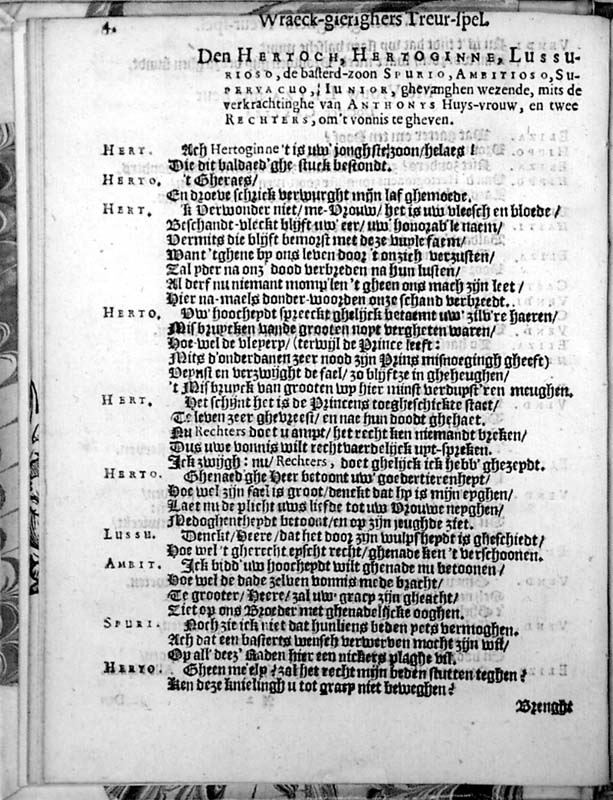 4. Wraeck-gierighers Treur-spel.
Den HERTOCH, HERTOGINNE, LUSSU-
RIOSO, de basterd-zoon SPURIO, AMBITIOSO, SU-
PERVACUO, IUNIOR, ghevanghen wezende, mits de
verkrachtinghe van ANTHONYS Huys-vrouw, en twee
RECHTERS, om't vonnis te gheven.
HERT. Ach Hertoginne 't is uw' jonghste zoon/helaes!
Die dit baldaed'ghe stuck bestondt.
HERTO. 't Gheraes/
En droeve schrick verwurght mijn laf ghemoede.
HERT. 'k Verwonder niet/me-Vrouw/het is uw vleesch en bloede/
Beschandt-vleckt blijft uw' eer/uw' honorab'le naem/
Vermits die blijft bemorst met deze vuyle faem/
Want 'tghene by ons leven door 't onzich verzusten/
Tal yder na onz' dood verbreden na hun lusten/
Al derf nu niemant momp'len 't gheen ons mach zijn leet/
Hier na-maels donder-woorden onze schand verbreedt.
HERTO. Uw' hoocheydt spreeckt ghelijck betaemt uw' zilv're haeren/
Misbruycken vande grooten noyt vergheten waren/
Hoe-wel de vleyery/(terwijl de Prince leeft:
Mits d'onderdanen zeer nood zijn Prins misnoegingh gheeft)
Veynst en verzwijght de fael/zo blijftze in gheheughen/
't Misbruyck van grooten wy hier minst verdupst'ren meughen.
HERT. Het schijnt het is de Princens toegheschickte staet/
Te leven zeer ghevreest/en nae hun doodt ghehaet.
Nu Rechters doet u ampt/het recht ken niemandt breken/
Dus uwe vonnis wilt rechtvaerdelijck uyt-spreken.
Ick zwijgh: nu/Rechters, doet ghelijck ick hebb' ghezeydt.
HERTO. Ghenaed'ghe Heer betoont uw' goedertierenheyt/
Hoe wel zijn fael is groot/denckt dat hy is mijn eyghen/
Laet nu de plicht uws liefde tot uw Vrouwe neyghen/
Medoghentheydt betoont/en op zijn jeughde ziet.
LUSSU. Denckt/Heere/dat het door zijn wulpsheydt is gheschiedt/
Hoe wel 't gherecht eyscht recht/ghenade ken 't verschoonen.
AMBIT. Ick bidd' uw hoocheydt wilt ghenade nu betoonen/
Hoe wel de dade zelven vonnis mede bracht/
Te grooter/Heere/zal uw' gracy zijn gheacht/
Ziet op ons Broeder met ghenadelijcke ooghen.
SPURI. Noch zie ick niet dat hunliens beden yets vermoghen.
Ach dat een basterts wensch verwerven mocht zijn wil/
Op all' deez' Raden hier een nickers plaghe vil.
HERTO. Gheen me'ely? zal het recht mijn beden stutten teghen?
Ken deze knielingh u tot gracy niet beweghen?
Brenght